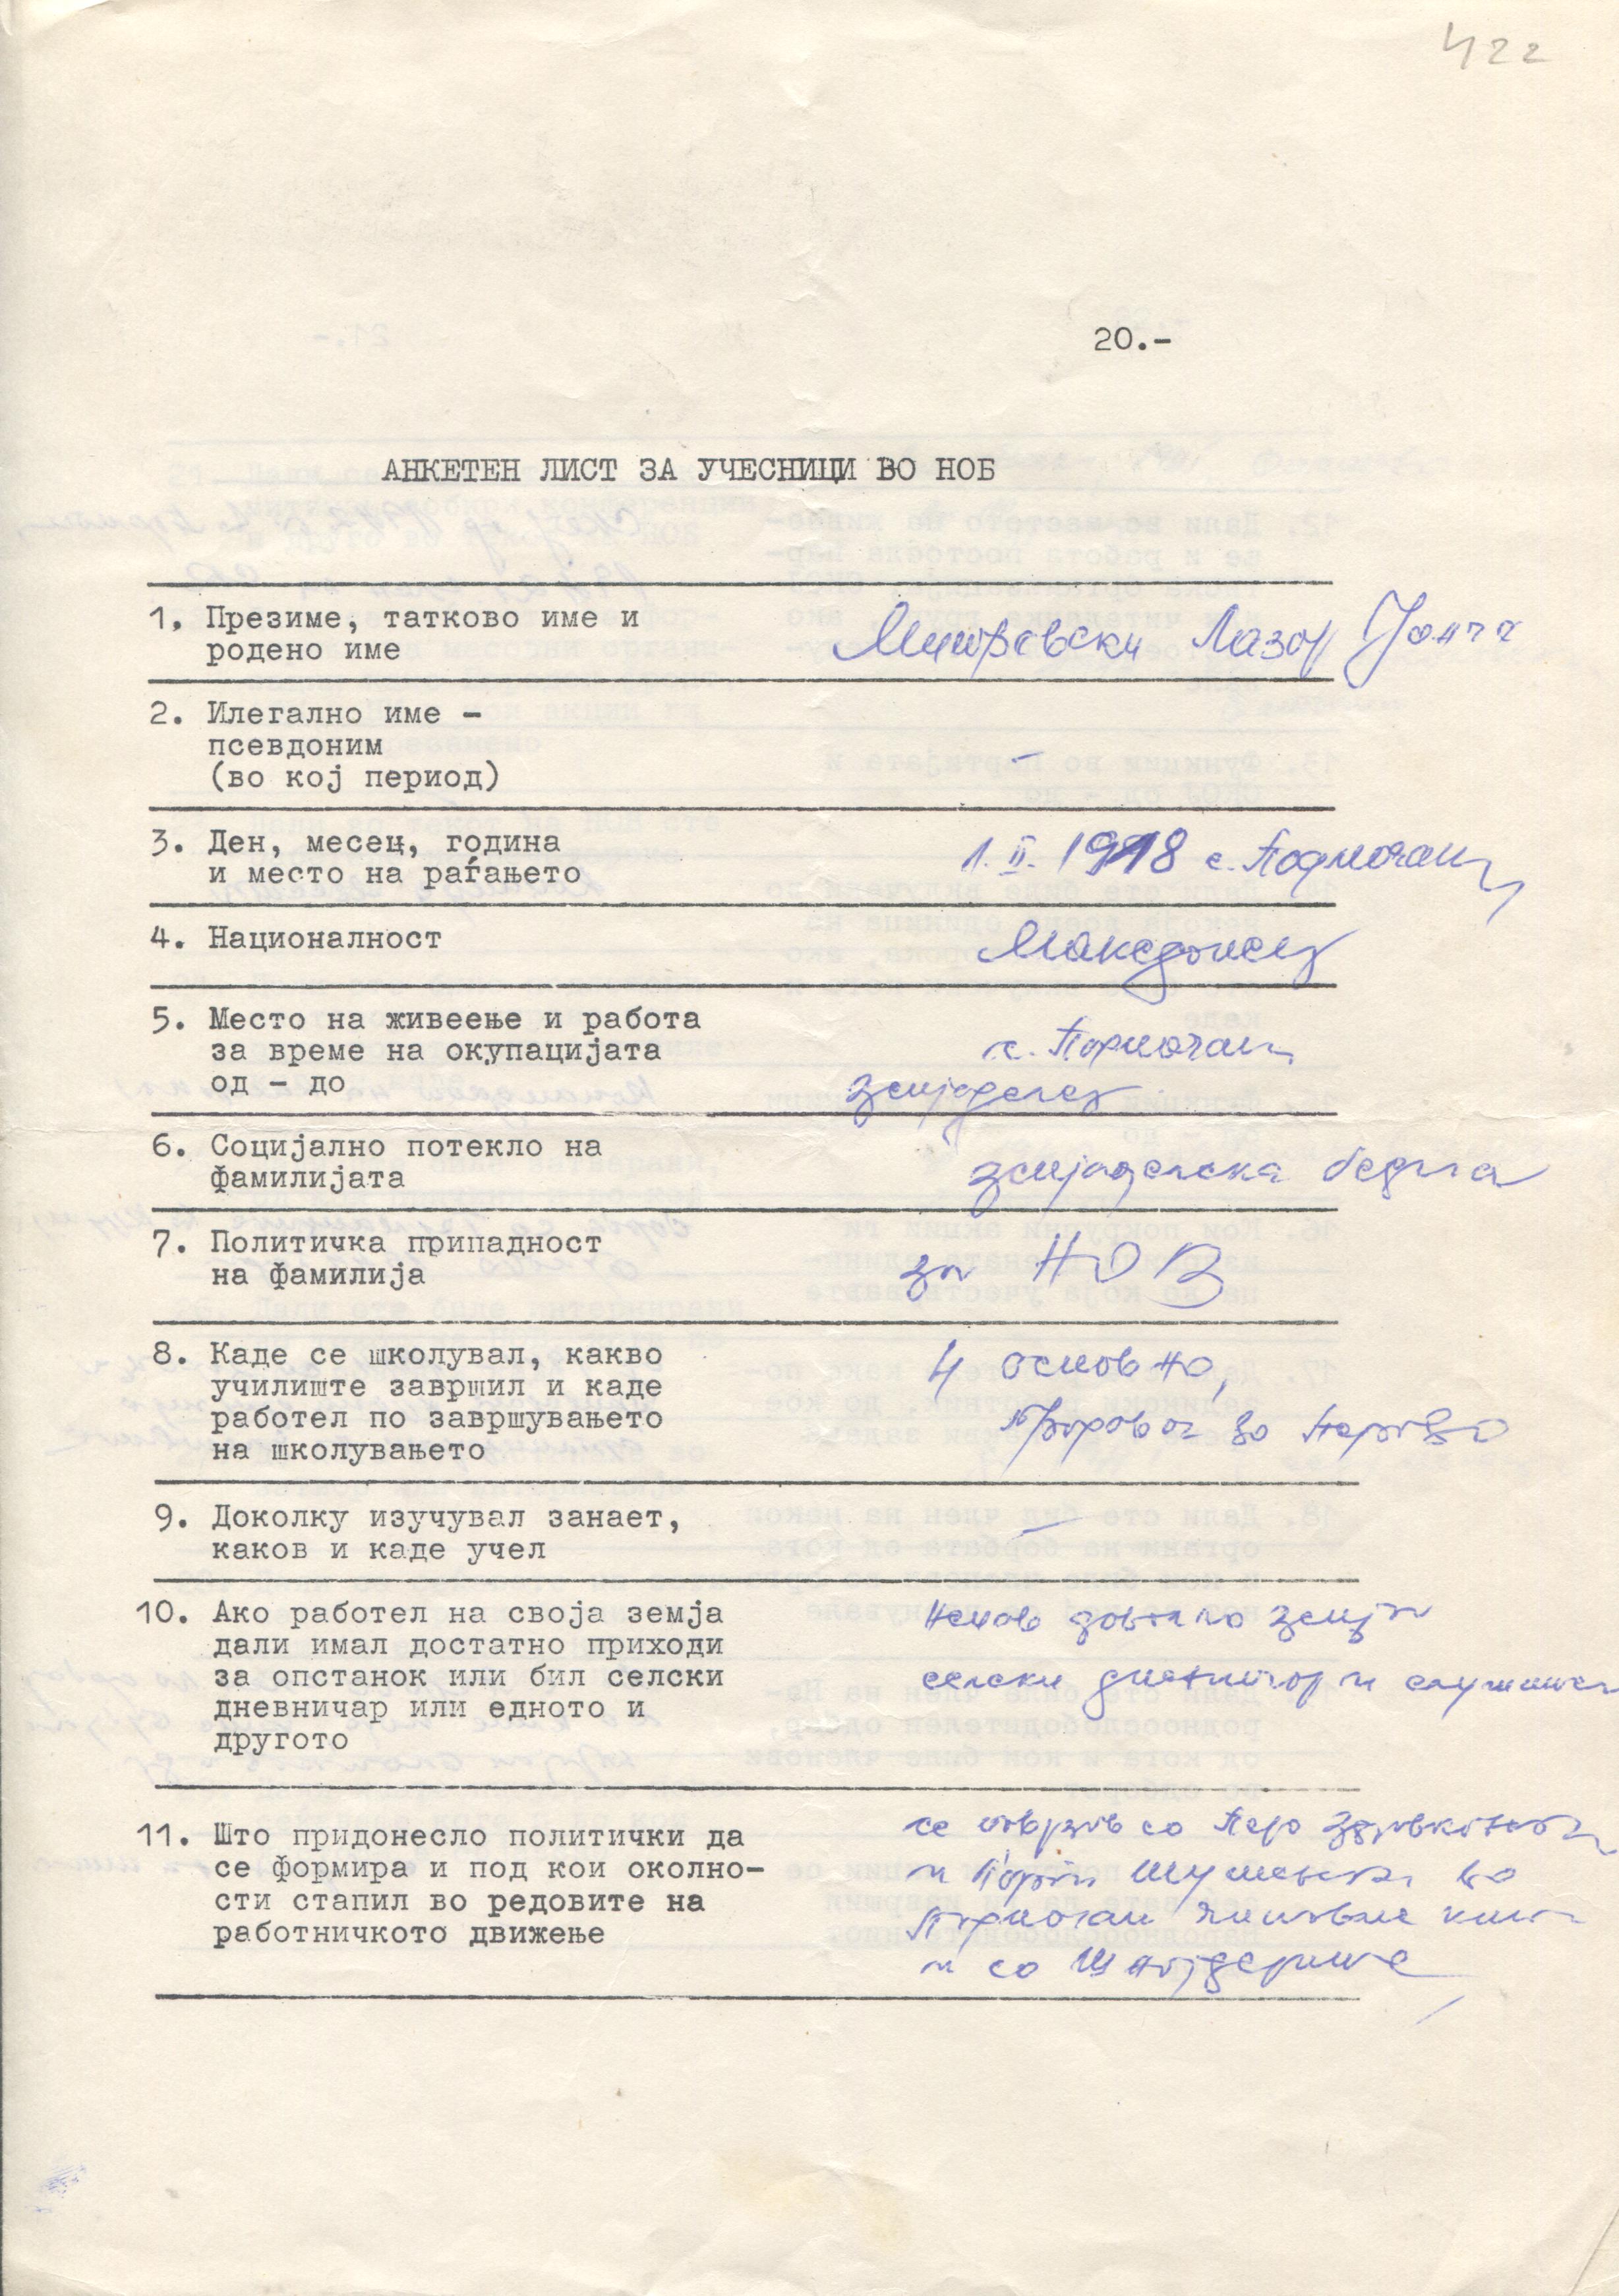 422
20.-
АНКЕТЕН ЛИСТ ЗА УЧЕСНИЦИ ВО НОБ
1. Презиме, татково име и
родено име
Митревски Лазор
2. Илегално име -
псевдоним
(во кој период)
-
3. Ден, месец, година
и место на раѓањето
1. II. 1918 с. Подмочани
4. Националност
Македонец
5. Место на живеење и работа
за време на окупацијата
од - до
с. Подмочани
земјоделец
6. Социјално потекло на
фамилијата
земјоделска бедна
7. Политичка припадност
на фамилија
за НОВ
8. Каде се школувал, какво
училиште завршил и каде
работел по завршувањето
на школувањето
4 основно,
9. Доколку изучувал занает,
каков и каде учел
-
10. Ако работел на своја земја
дали имал достатно приходи
за опстанок или бил селски
дневничар или едното и
другото
земја
селски
11. Што придонесло политички да
се формира и под кои околно-
сти стапил во редовите на
работничкото движење
се поврзав со Перо
и во
Подмочани
и со Шнајдерите